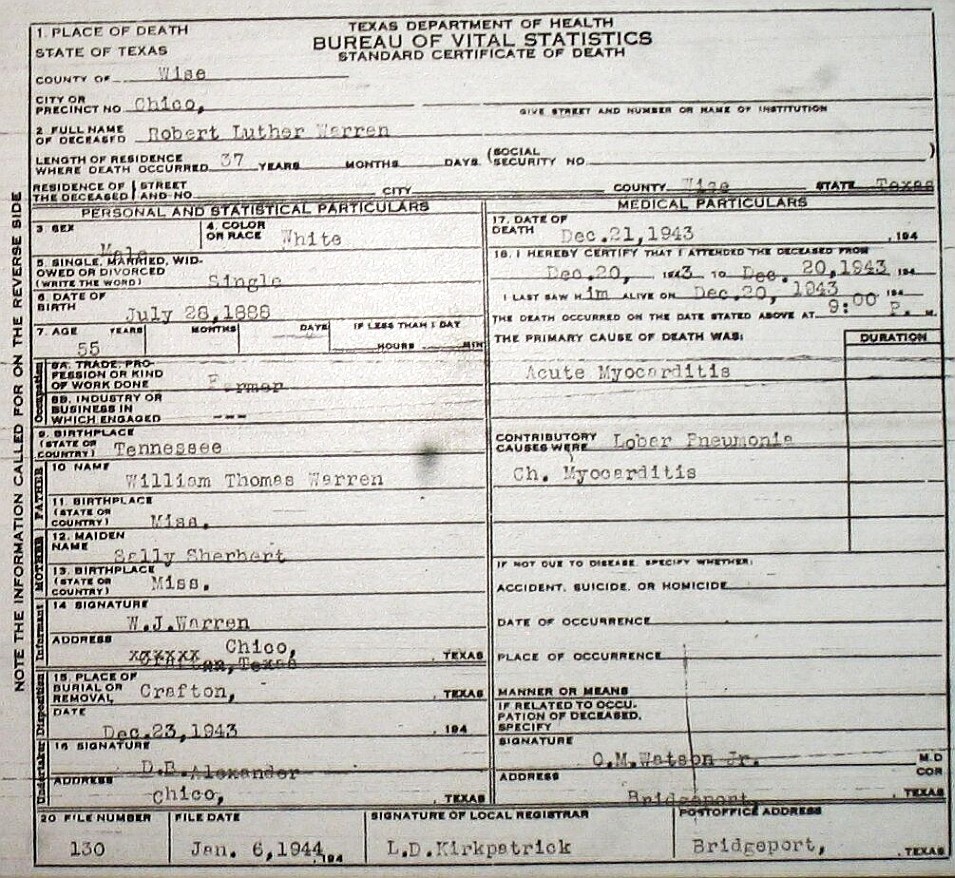 TEXAS DEPARTMENT OF HEALTH
BUREAU OF VITAL STATISTICS
STANDARD CERTIFICATE OF DEATH
1. PLACE OF DEATH
STATE OF TEXAS
COUNTY OF Wise
CITY OR PRECINCT NO. Chico,
GIVE STREET AND NUMBER OR NAME OF INSTITUTION
2 FULL NAME OF DECEASED Robert Luther Warren
LENGTH OF RESIDENCE WHERE DEATH OCCURRED 37 YEARS MONTHS DAYS (SOCIAL SECURITY NO. )
RESIDENCE OF THE DECEASED STREET AND NO. CITY COUNTY Wise STATE Texas
PERSONAL AND STATISTICAL PARTICULARS
3 SEX Male
4. COLOR OR RACE White
5. SINGLE, MARRIED, WIDOWED OR DIVORCED (WRITE THE WORD) Single
6. DATE OF BIRTH July 28,1888
7. AGE YEARS MONTHS DAYS IF LESS THAN 1 DAY
55 HOURS MIN
Occupation
8A. TRADE, PROFESSION OR KIND OF WORK DONE Farmer
8B. INDUSTRY OR BUSINESS IN WHICH ENGAGED ---
9. BIRTHPLACE (STATE OR COUNTRY) Tennessee
FATHER
10 NAME William Thomas Warren
11. BIRTHPLACE (STATE OR COUNTRY) Miss.
MOTHER
12. MAIDEN NAME Sally Sherhert
13. BIRTHPLACE (STATE OR COUNTRY) Miss.
Informant
14 SIGNATURE W.J.Warren
ADDRESS Chico,
xxxxxxx Crafton,Texas , TEXAS
Disposition
15. PLACE OF BURIAL OR REMOVAL Crafton, , TEXAS
DATE Dec.23,1943 , 194
Undertaker
16 SIGNATURE D.E.Alexander
ADDRESS Chico, , TEXAS
MEDICAL PARTICULARS
17. DATE OF DEATH Dec.21,1943 , 194
18. I HEREBY CERTIFY THAT I ATTENDED THE DECEASED FROM
Dec.20, 1943 TO Dec. 20,1943 194
I LAST SAW Him ALIVE ON Dec.20, 1943 194
THE DEATH OCCURRED ON THE DATE STATED ABOVE AT 9:00 P. M.
THE PRIMARY CAUSE OF DEATH WAS: DURATION
Acute Myocarditis
CONTRIBUTORY CAUSES WERE Lober Pneumonia
Ch. Myocarditis
IF NOT DUE TO DISEASE, SPECIFY WHETHER:
ACCIDENT, SUICIDE, OR HOMICIDE
DATE OF OCCURRENCE
PLACE OF OCCURRENCE
MANNER OR MEANS
IF RELATED TO OCCUPATION OF DECEASED, SPECIFY
SIGNATURE O.M.Watson Jr. M.D
COR
ADDRESS Bridgeport, TEXAS
20 FILE NUMBER 130
FILE DATE Jan. 6,1944 , 194
SIGNATURE OF LOCAL REGISTRAR L.D.Kirkpatrick
POSTOFFICE ADDRESS Bridgeport, , TEXAS
NOTE THE INFORMATION CALLED FOR ON THE REVERSE SIDE